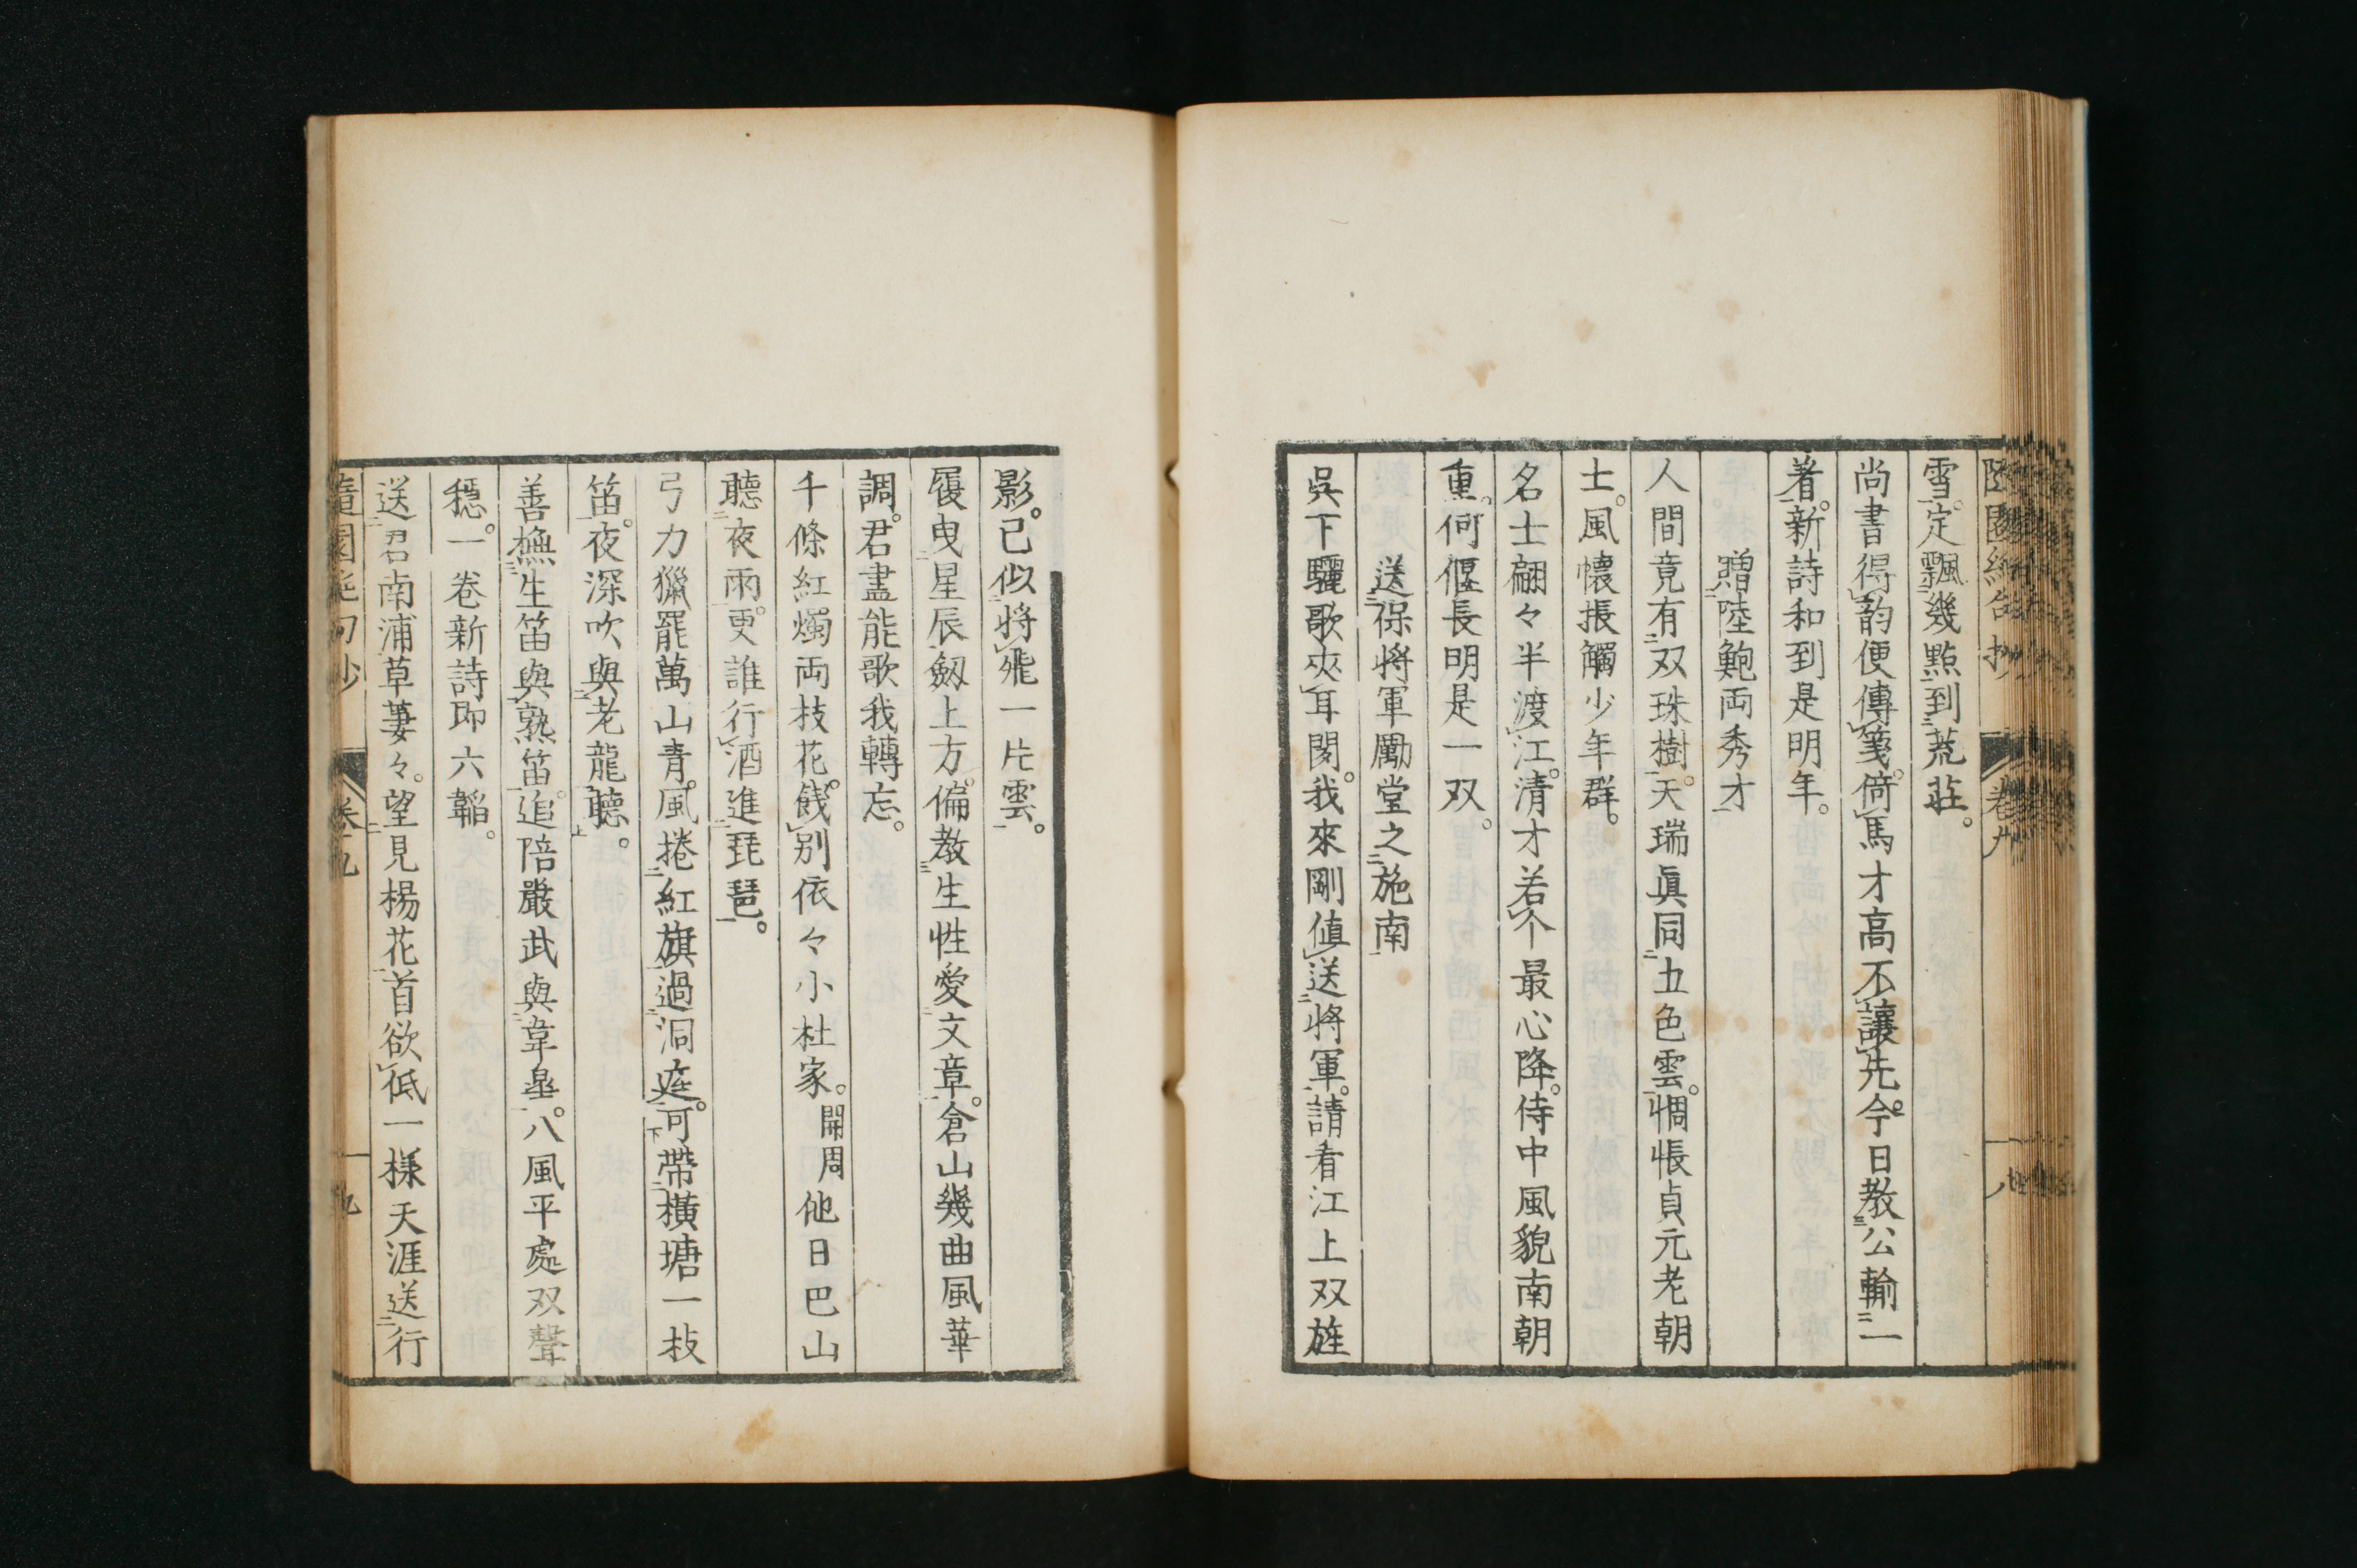 隨園絶句抄 卷九 八
雪。定飄幾點到荒莊。
尚書得韵便傳箋。倚馬才高不讓先。今日教公輸一
着。新詩和到是明年。
贈陸鮑両秀才
人間竟有双珠樹。天瑞眞同五色雲。惆悵貞元老朝
士。風懷振觸少年群。
名士翩々半渡江。清才若个最心降。侍中風貌南朝
重。何偃長明是一双。
送保將軍勵堂之施南
吳下驪歌夾耳聞。我來剛値送將軍。請看江上双旌
影。已似將飛一片雲。
履曳星辰劔上方。偏教生性愛文章。倉山幾曲風華
調。君盡能歌我轉忘。
千條紅燭両枝花。餞別依々小杜家。開周他日巴山
聽夜雨。更誰行酒進琵琶。
弓力獵罷萬山青。風捲紅旗過洞庭。可帶橫塘一枝
笛。夜深吹與老龍聽。
善撫生笛與熟笛。追陪嚴武與韋皐。八風平處双聲
穩。一卷新詩即六韜。
送君南浦草萋々。望見楊花首欲低。一樣天涯送行
隨園絶句抄 卷九 九